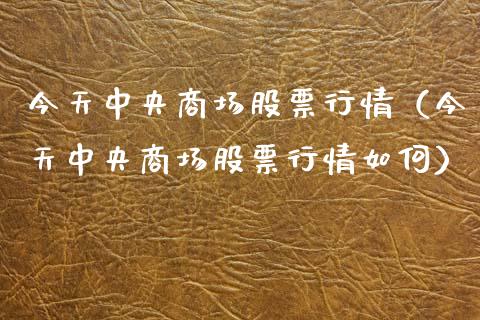 今天中央商场股票行情（今
天中央商场股票行情如何）